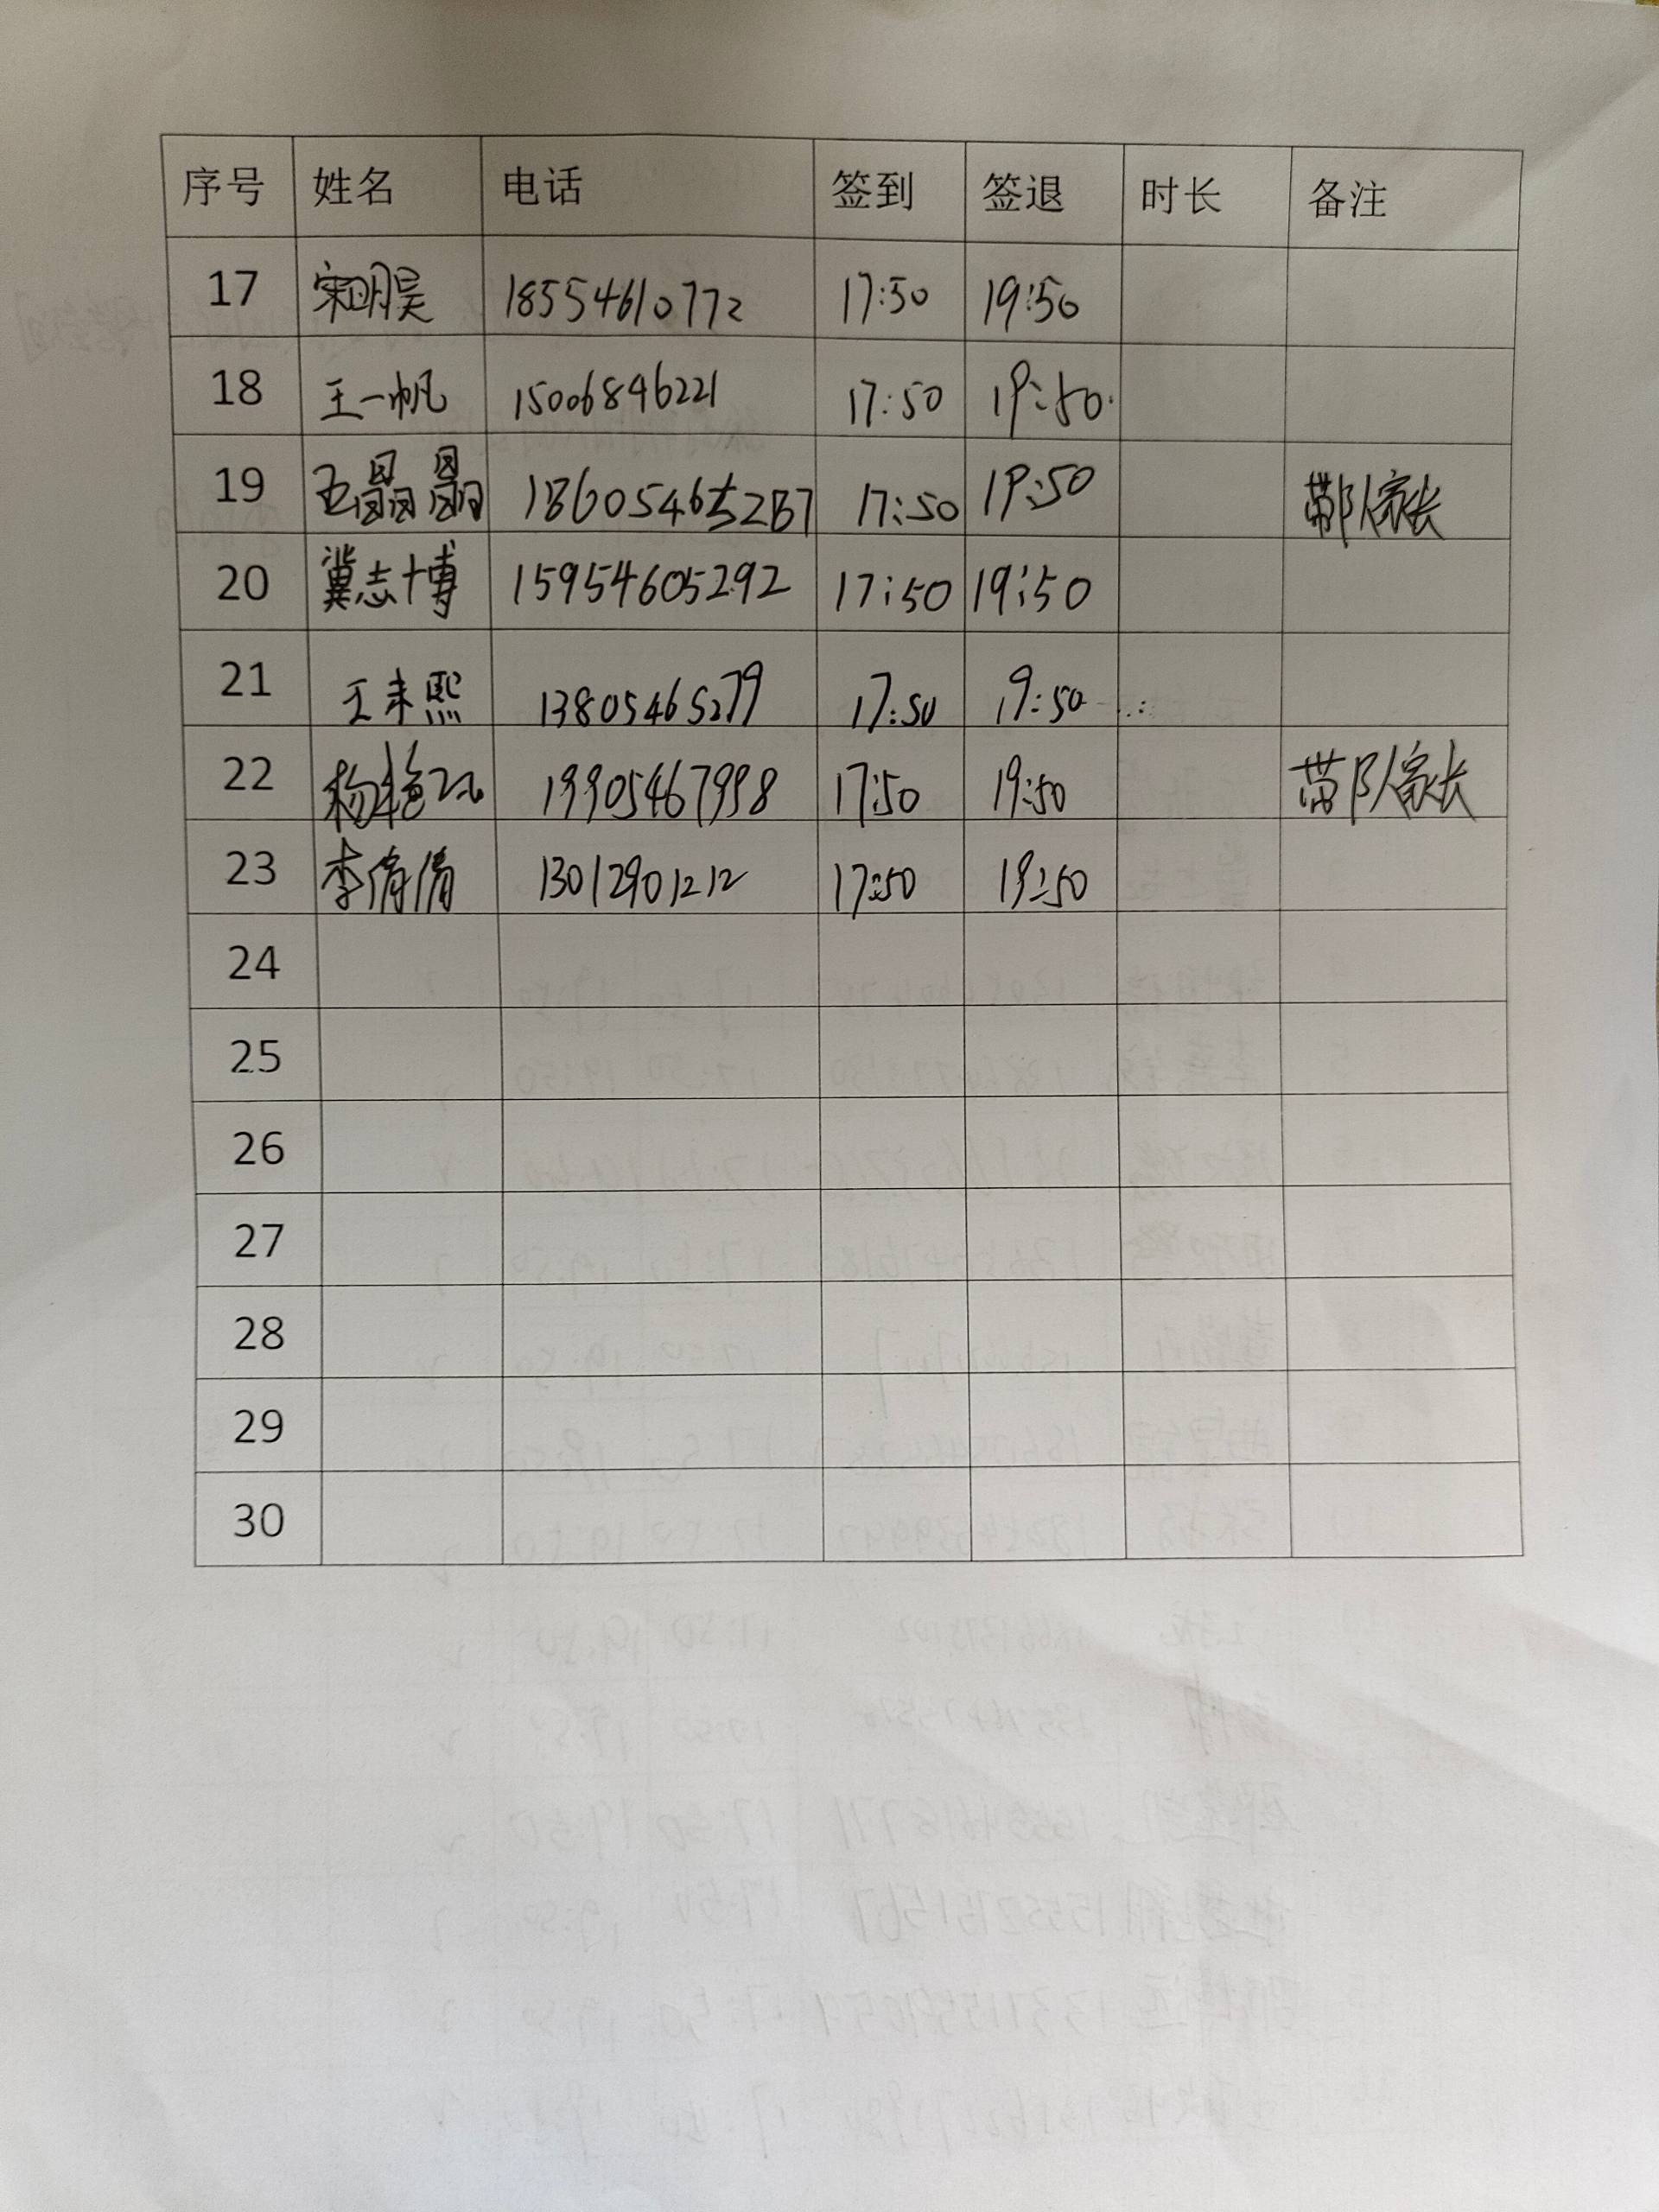 序号 姓名 电话 签到 签退 时长 备注
17 宋明昊 18554610772 17:50 19:50
18 王一帆 15006846221 17:50 19:50
19 王晶晶 18605465287 17:50 19:50 带队家长
20 冀志博 15954605292 17:50 19:50
21 王未熙 13805465279 17:50 19:50
22 杨艳 19905467998 17:50 19:50 带队家长
23 李倩倩 13012901212 17:50 19:50
24
25
26
27
28
29
30